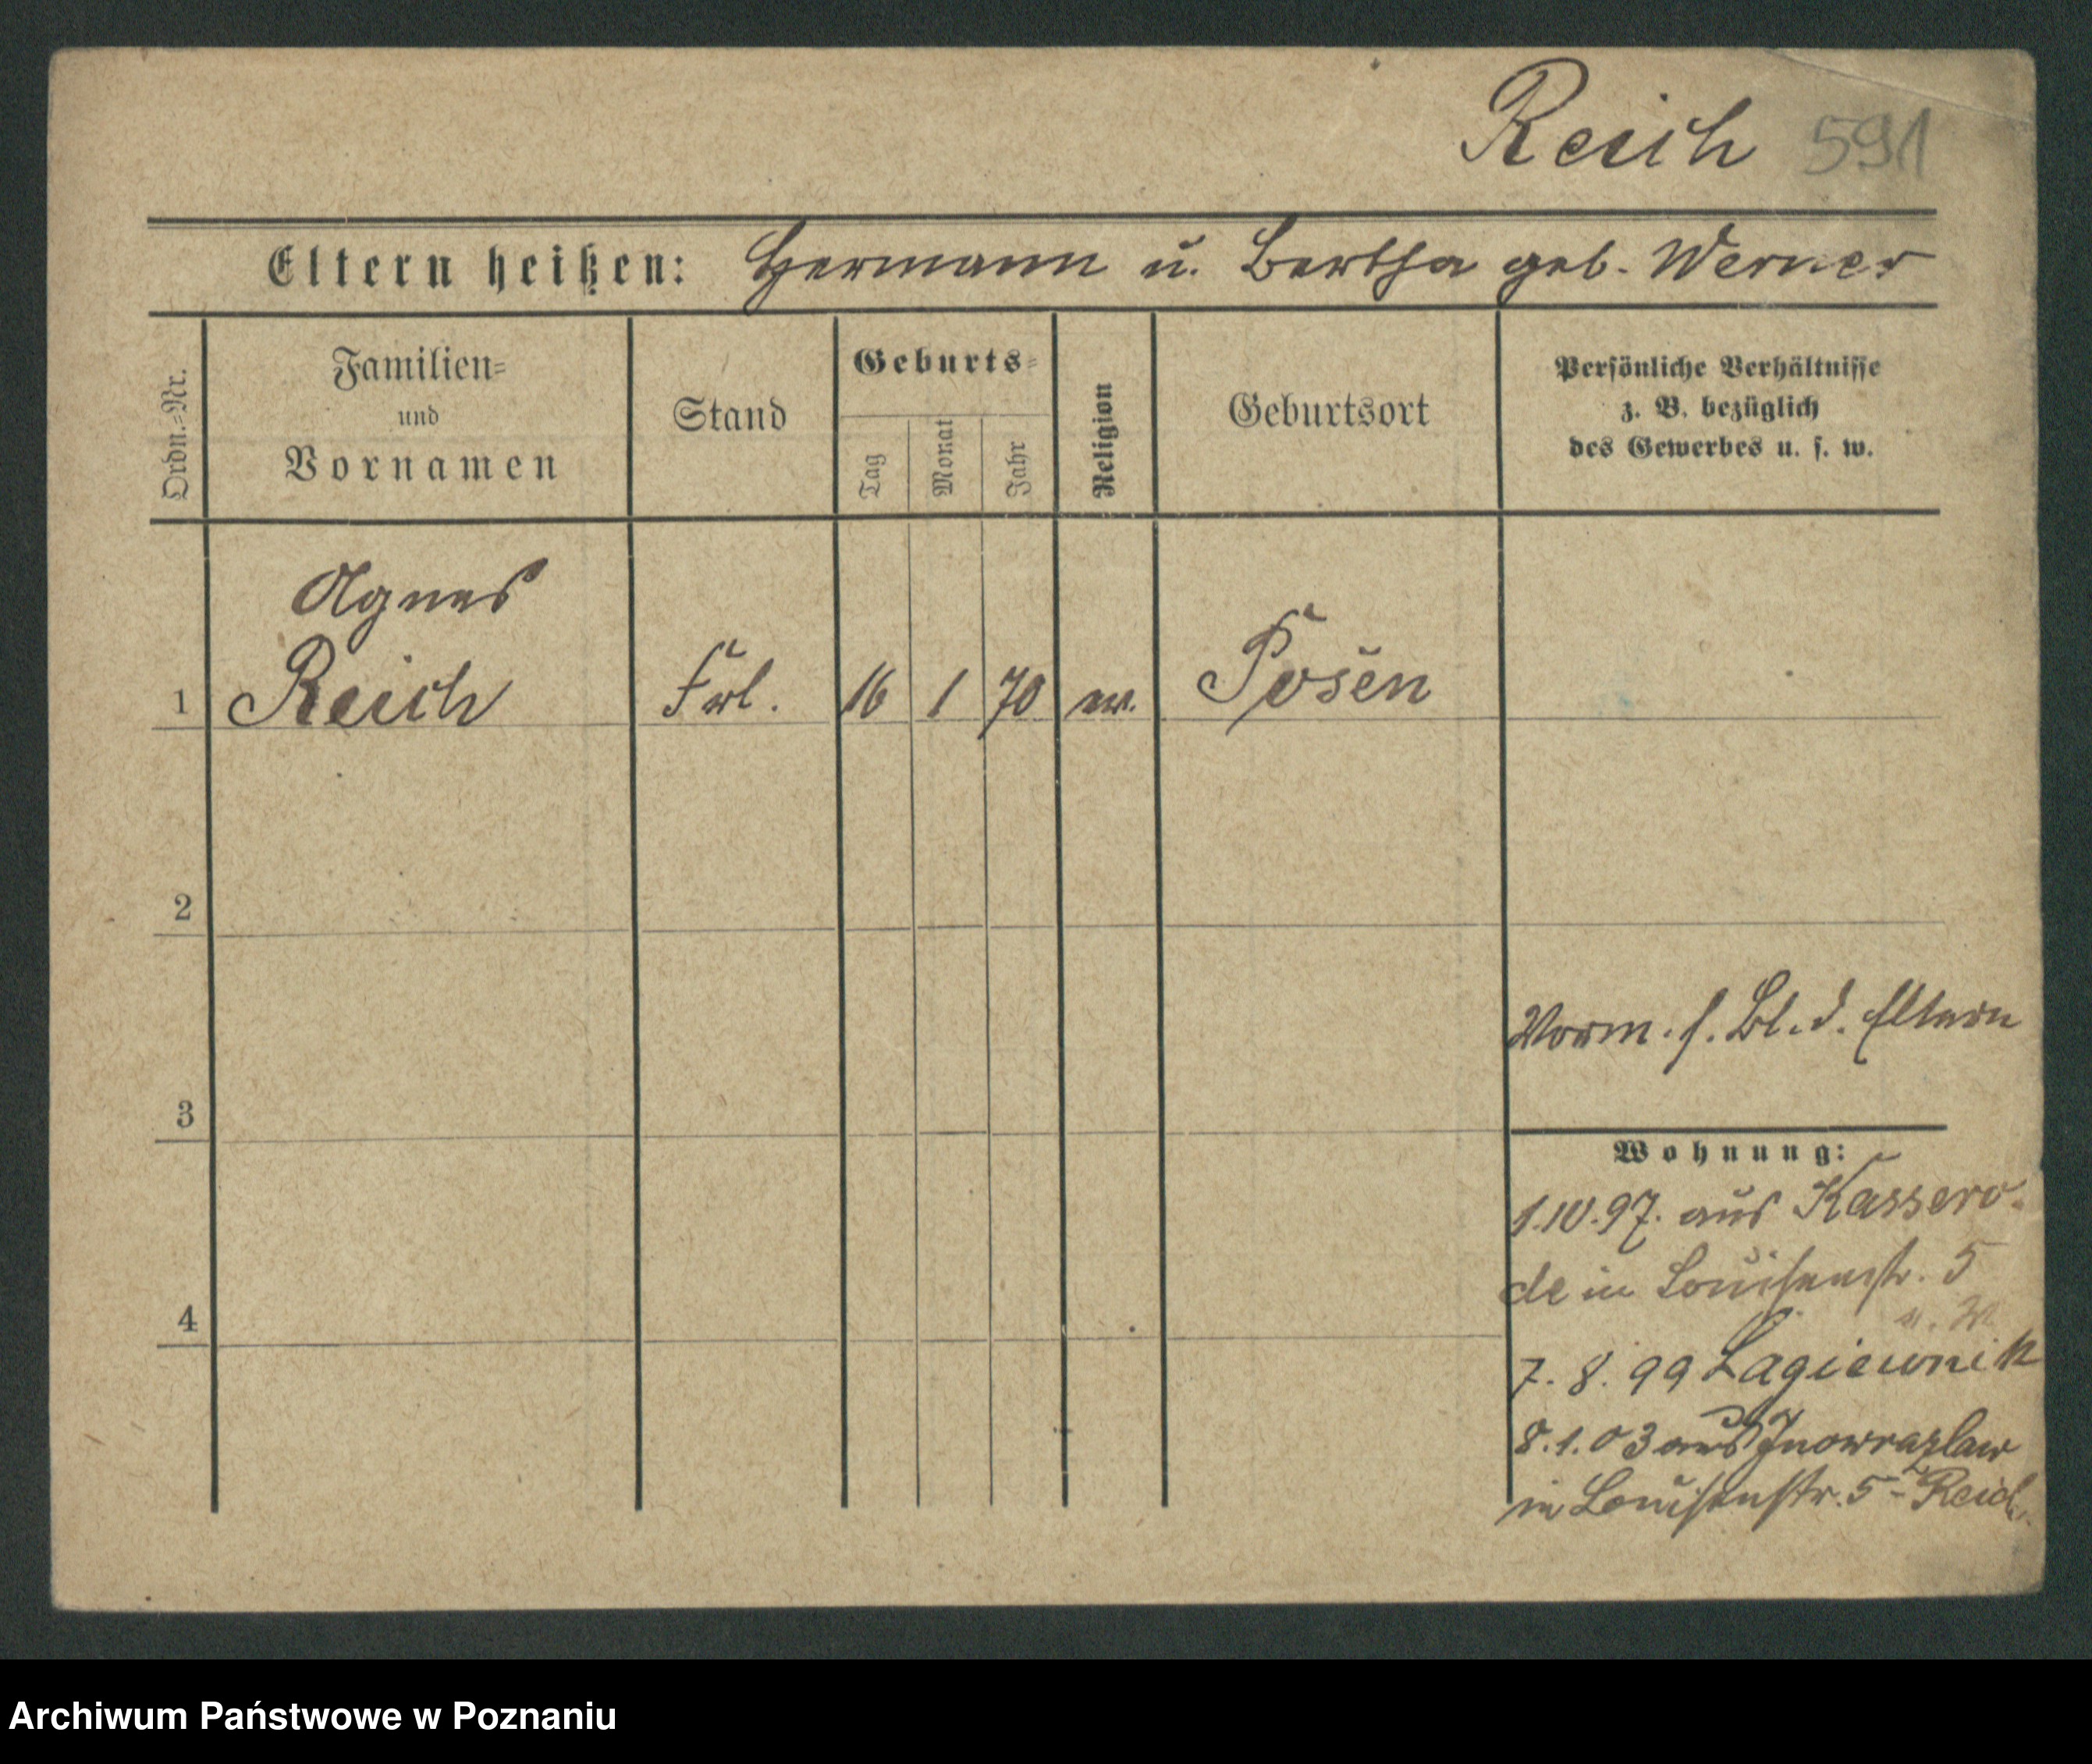 Reich 591
Eltern heißen: Hermann u. Bertha geb. Werner
Ordn.=Nr.
Familien=
und
Vornamen
Stand
Geburts=
Tag
Monat
Jahr
Religion
Geburtsort
Persönliche Verhältnisse
z. B. bezüglich
des Gewerbes u. s. w.
Agnes
1 Reich Frl. 16 1 70 ev. Posen
2
Vorm. s. Bl. d. Eltern
3
Wohnung:
1.10.97. aus Kassero-
de in Louisenstr. 5
4
7. 8. 99 Lagiewnik
8.1.03 aus Inowrazlaw
in Louisenstr. 5 - Reich
Archiwum Państwowe w Poznaniu